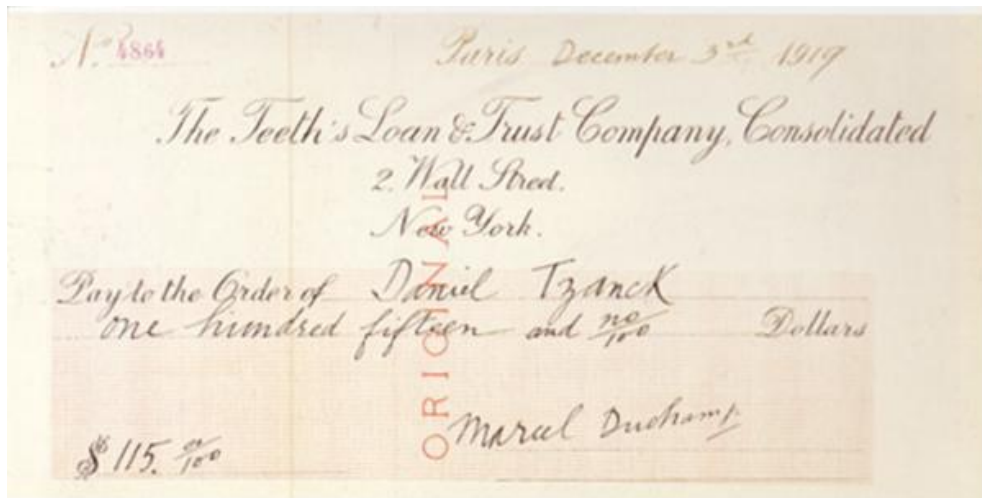 No. 4864
Paris December 3rd 1919
The Teeth's Loan & Trust Company, Consolidated
2. Wall Street.
New York.
Pay to the Order of Daniel Tzanck
one hundred fifteen and no/100 Dollars
ORIGINAL
Marcel Duchamp
$ 115. no/100